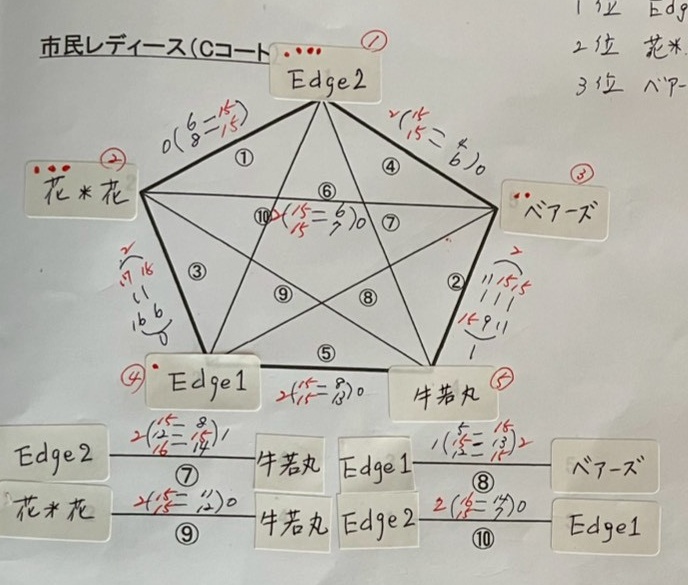 1位 Edg
2位 花*
3位 ベアー
市民レディース(Cコート
①
Edge2
0(6=15 8=15)
2(15=4 15=6)0
①
④
②
花*花
③
ベアーズ
⑥
⑩
2(15=6 15=7)0
⑦
2
17 16
③
16 6
0
⑨
⑧
②
2
11 15 15
15 9 11
1
⑤
④
Edge1
2(15=8 15=13)0
牛若丸
⑤
Edge2
2(15=8 12=15 16=14)1
⑦
牛若丸
Edge1
⑧
ベアーズ
花*花
2(15=11 15=12)0
⑨
牛若丸
Edge2
⑩
Edge1